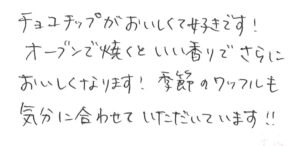 チョコチップがおいしくて好きです!
オーブンで焼くといい香りでさらに
おいしくなります! 季節のワッフルも
気分に合わせていただいています!!